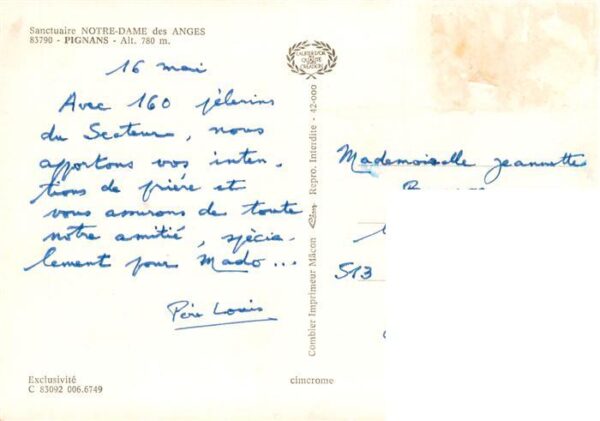 Sanctuaire NOTRE-DAME des ANGES
83790 - PIGNANS - Alt. 780 m.
16 mai
Avec 160 pèlerins
du Secteur, nous
apportons vos inten-
tions de prière et
vous assurons de toute
notre amitié, spécia-
lement pour Mado...
Père Louis
Exclusivité
C 83092 006.6749
Combier Imprimeur Mâcon Cim Repro. Interdite - 42-000
cimcrome
Mademoiselle Jeannette
513